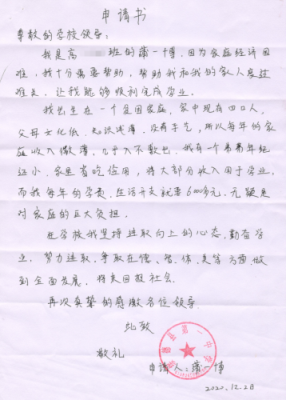 申请书
尊敬的学校领导:
我是高 班的蒲一博,因为家庭经济困
难,我十分需要帮助,帮助我和我的家人度过
难关,让我能够顺利完成学业。
我出生在一个贫困家庭,家中现有四口人,
父母文化低,知识浅薄,没有手艺,所以每年的家
庭收入微薄,几乎入不敷出。我有一个弟弟年纪
还小,家里省吃俭用,将大部分收入用于学业,
而我每年的学费,生活开支就要6000多元,无疑是
对家庭的巨大负担。
在学校我坚持进取向上的心态,勤奋学
业,努力进取,争取在德、智、体、美等方面做
到全面发展,将来回报社会。
再次真挚的感谢各位领导
此致
敬礼
申请人:蒲一博
2020.12.20